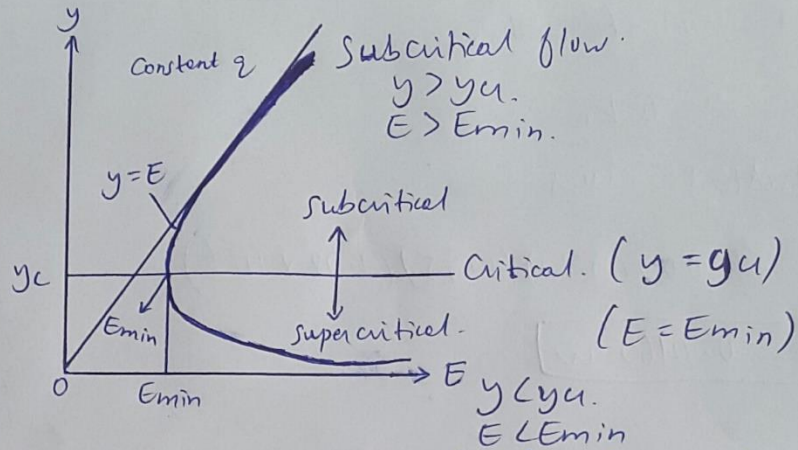 y
Constent q
Subcritical flow.
y > yu.
E > Emin.
y = E
Subcritical
yc
Critical. (y = gu)
Emin
Supercritical.
(E = Emin)
O
Emin
E
y < yu.
E < Emin